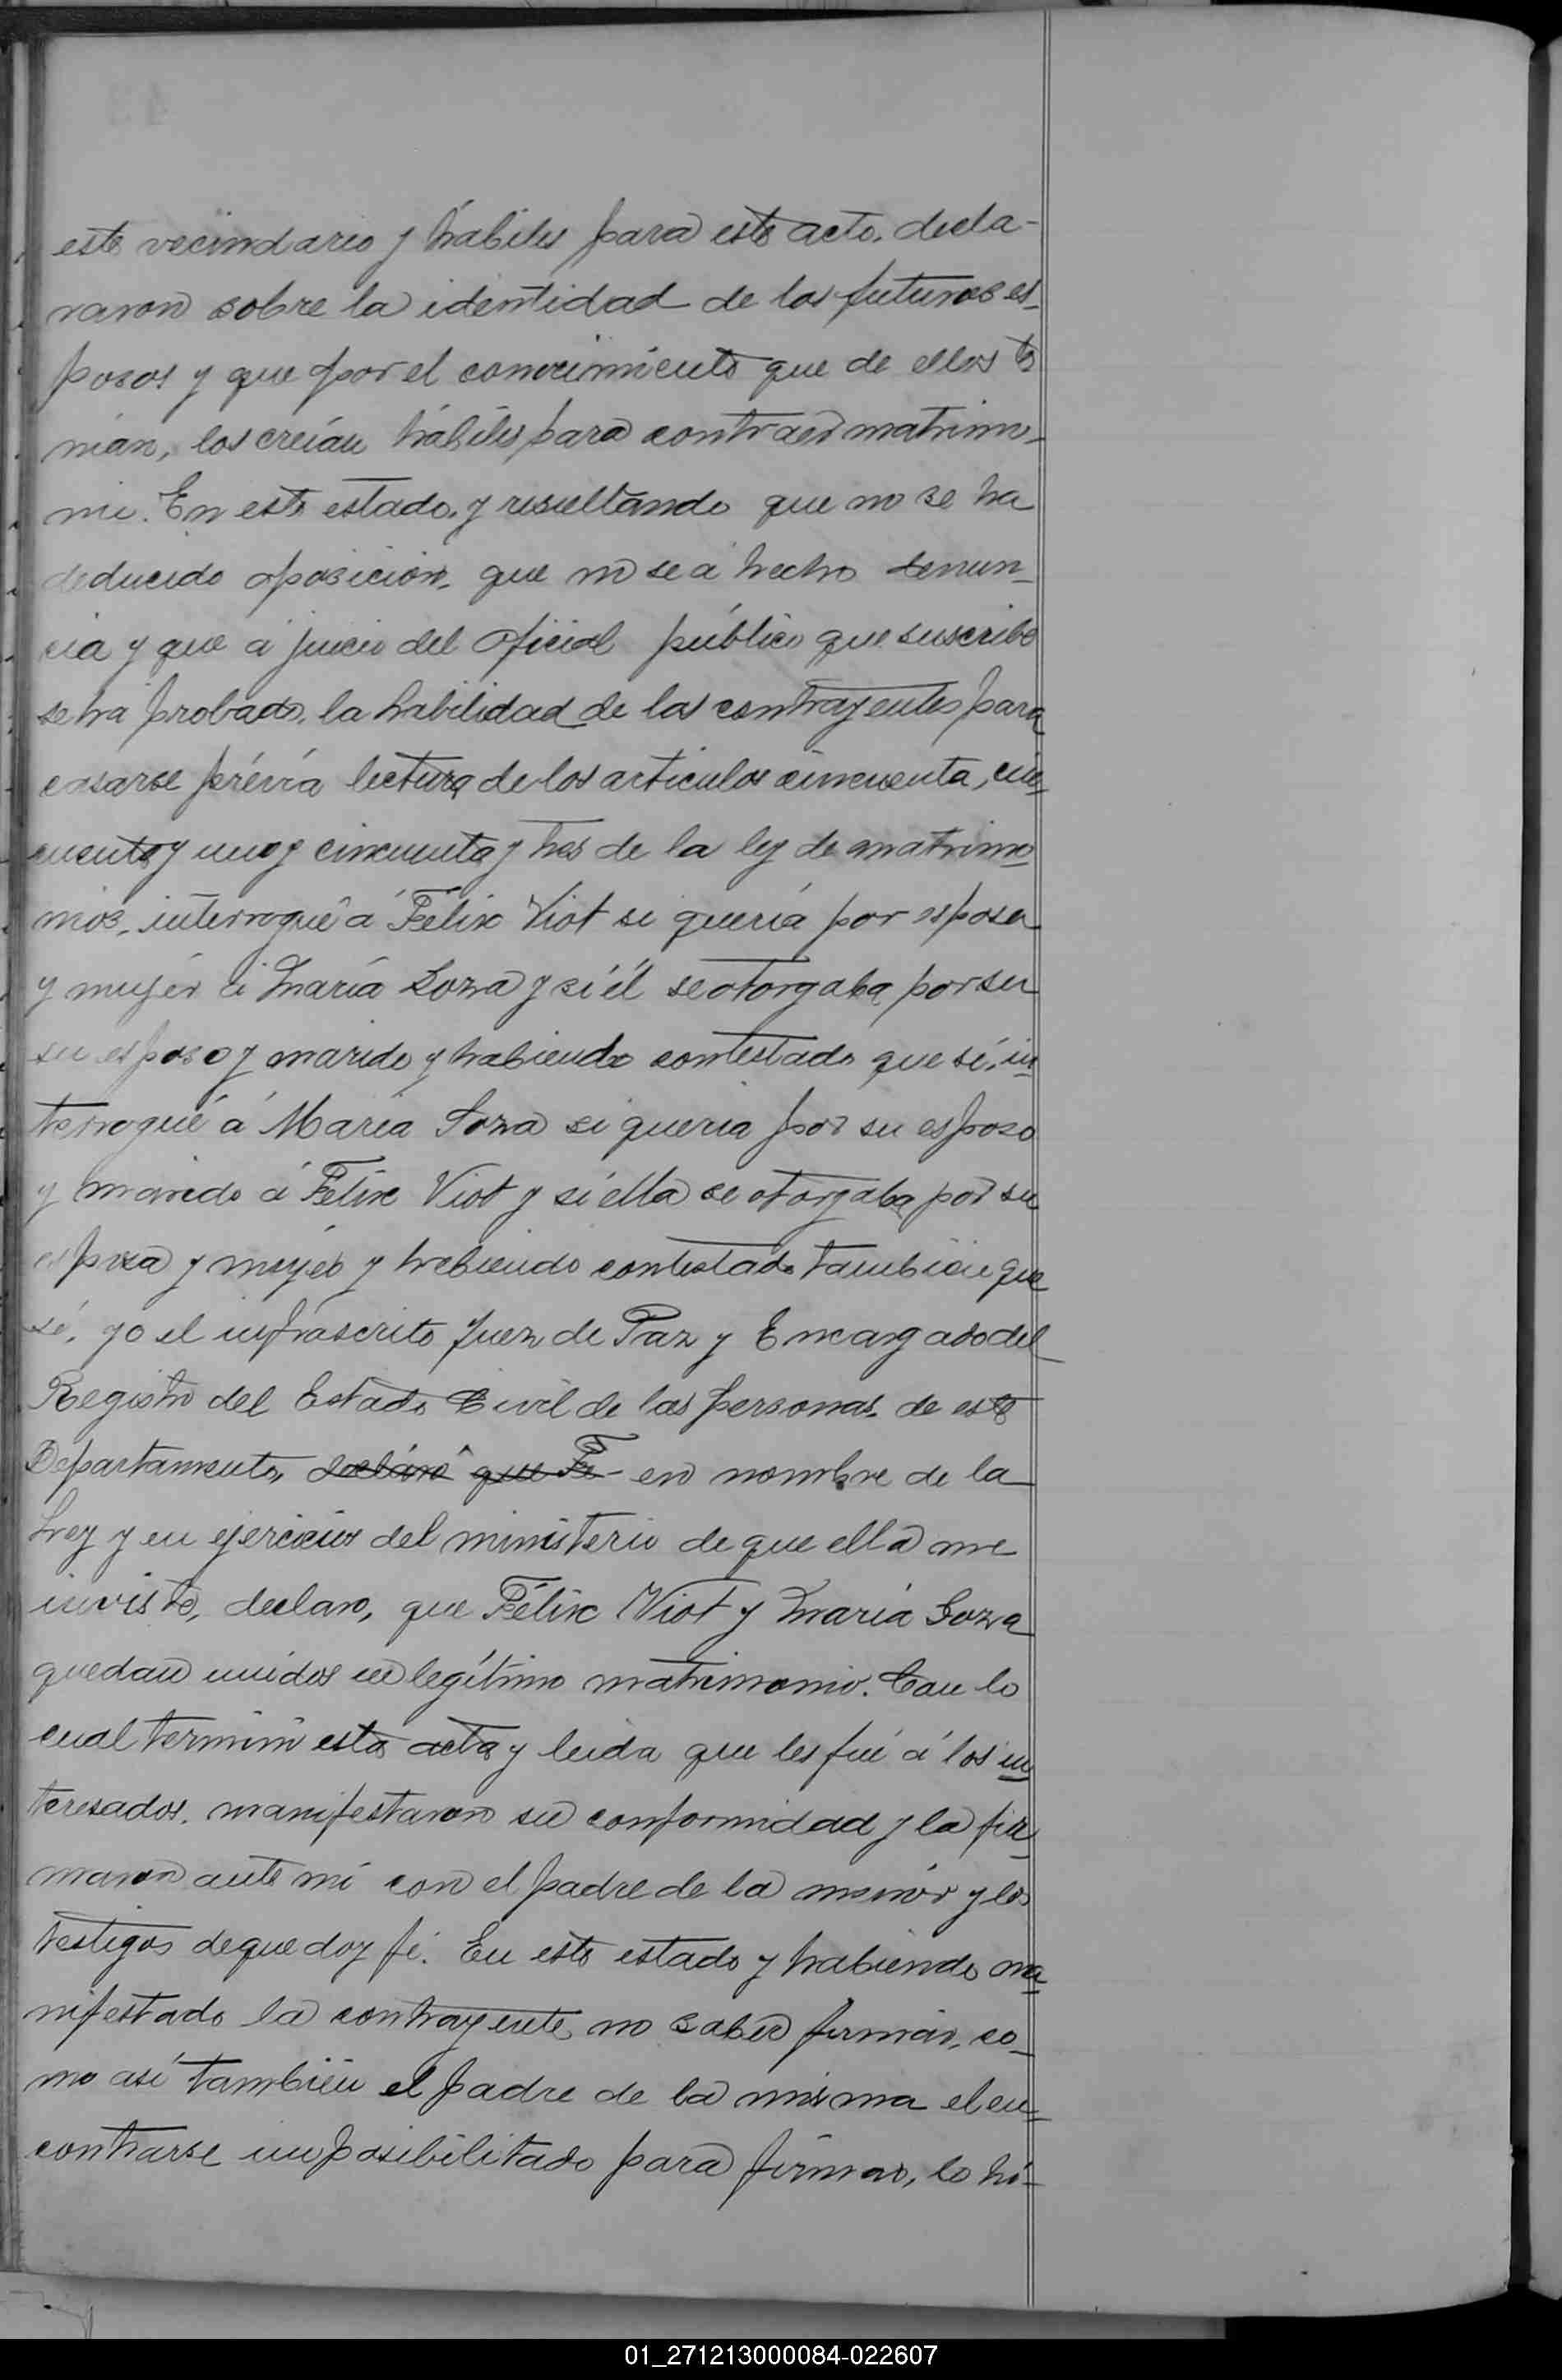 este vecindario y hábiles para este acto, decla-
raron sobre la identidad de los futuros es-
posos y que por el conocimiento que de ellos te
nian, los creían hábiles para contraer matrimo-
nio. En este estado, y resultando que no se ha
deducido oposición, que no se á hecho denun-
cia y que á juicio del oficial público que suscribe
se ha probado, la habilidad de los contrayentes para
casarse prévía lectura de los artículos cincuenta, cin-
cuenta y uno y cincuenta y tres de la ley de matrimo-
nios, interrogué á Félix Viot si quería por esposa
y mujér á María Soza y si él se otorgaba por su
su esposo y marido y habiendo contestado que sí, in-
terrogué á María Soza si queria por su esposo
y marido á Félix Viot y si ella se otorgaba por su
esposa y mujér y habiendo contestado tambien que
sí, yo el infrascrito Juez de Paz y Encargado del
Registro del Estado Civil de las personas, de este
Departamento, declaro que Fe- en nombre de la
Ley y en ejercicios del ministerio de que ella me
inviste, declaro, que Félix Viot y María Soza
quedan unidos en legítimo matrimonio. Con lo
cual terminó esta acta y leida que les fué á los in-
teresados, manifestaron su conformidad y la fir-
maron ante mí con el padre de la menór y los
testigos de que doy fé. En este estado y habiendo ma-
nifestado la contrayente no saber firmár, co-
mo así tambien el padre de la misma el en-
contrarse imposibilitado para firmar, lo hi-
01_271213000084-022607